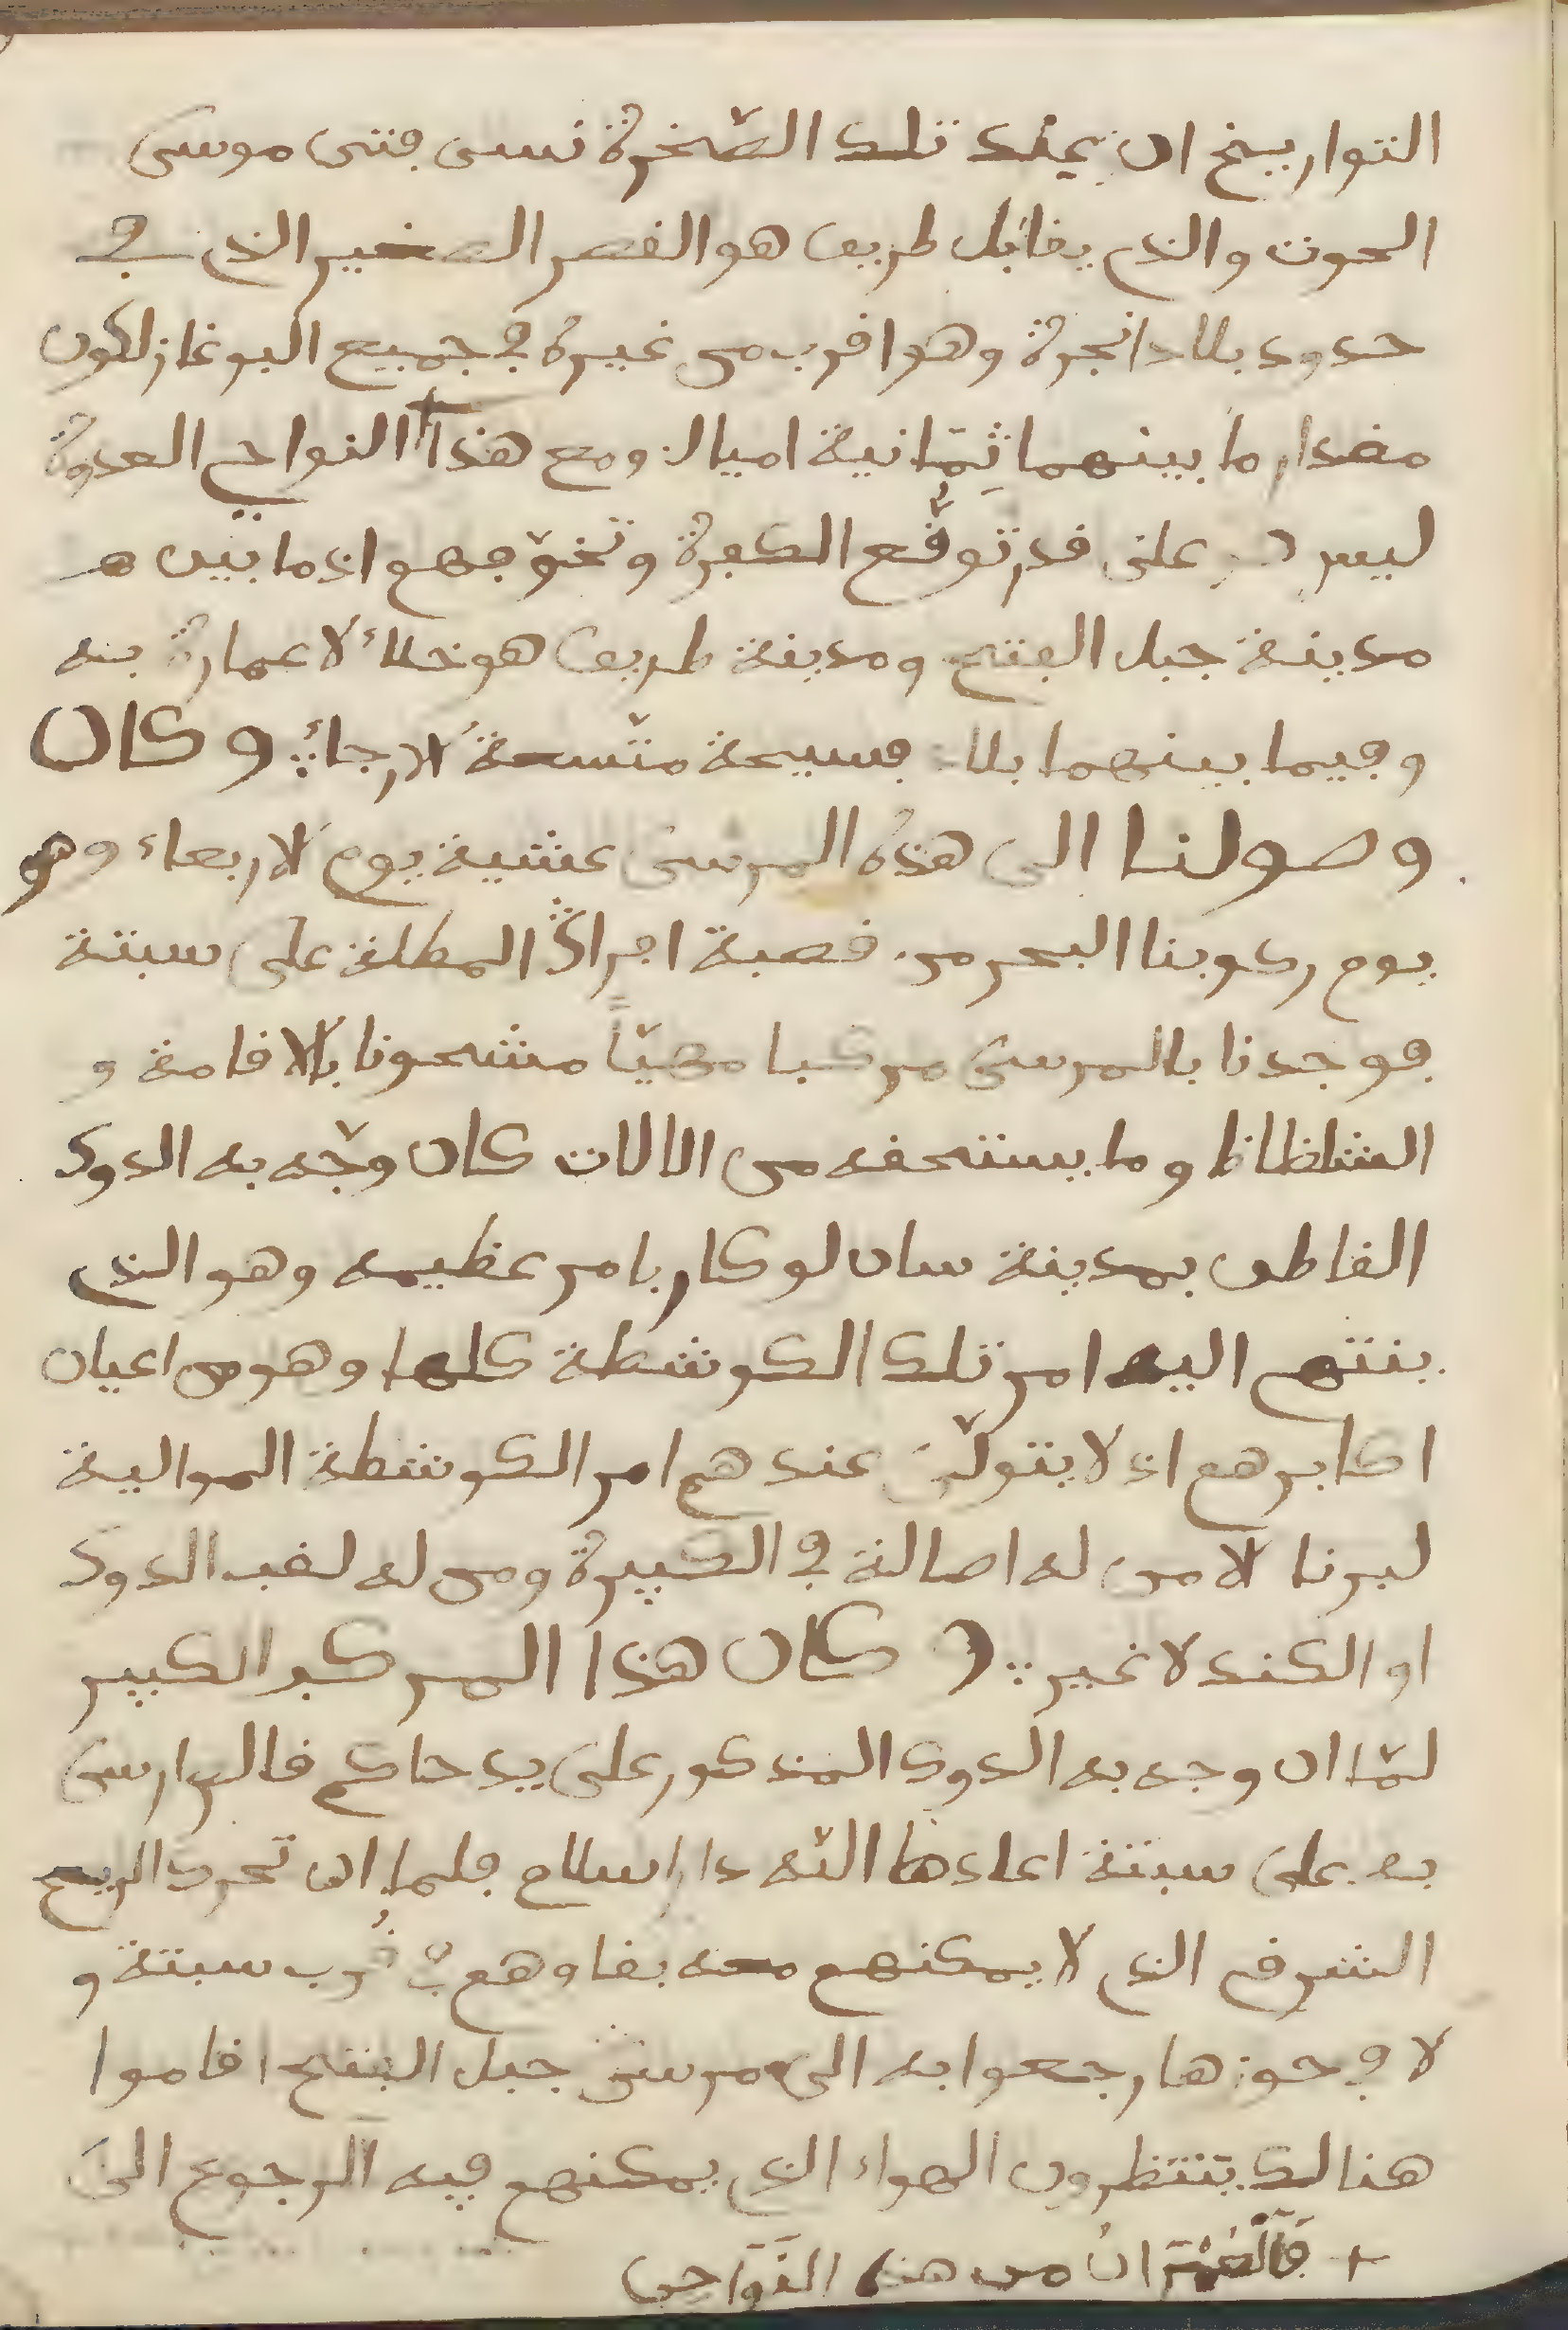 التواريخ ان عند تلك الصّخرة نسى فتى موسى
الحوت والذي يقابل طريف هو القصر الصغير الذي في
حدود بلاد انجرة وهو اقرب من غيره في جميع البوغاز لكون
مقدار ما بينهما ثمانية اميال ومع هذا + النواحي العدوة
ليس على قدر توقّع الكفرة وتخوّفهم اذ ما بين
مدينة جبل الفتح ومدينة طريف هو خلاء لا عمارة به
وفيما بينهما بلاد فسيحة متّسعة الارجاء وكان
وصولنا الى هذه المرسى عشية يوم الاربعاء وهو
يوم ركوبنا البحر من قصبة افراڭ المطلة على سبتة
فوجدنا بالمرسى مركبا مهيّأ مشحونا بالاقامة و
الشلظاظ وما يستحقه من الالات كان وجّه به الدوك
القاطن بمدينة سان لوكار بامر عظيمه وهو الذي
ينتهي اليه امر تلك الكوشطة كلها وهو من اعيان
اكابرهم اذ لا يتولّى عندهم امر الكوشطة الموالية
لبرنا الا من له اصالة في الكبيرة ومن له لقب الدوك
او الكند لا غير وكان هذا المركب الكبير
لمّا ان وجه به الدوك المذكور على يد حاكم قالس ارسى
به على سبتة اعادها اللّه دار اسلام فلما ان تحرك الريح
الشرقي الذي لا يمكنهم معه بقاوهم بقُرب سبتة و
لا في حوزها رجعوا به الى مرسى جبل الفتح اقاموا
هنالك ينتظرون الهواء الذي يمكنهم فيه الرجوع الى
+ ان من هذه النّواحي